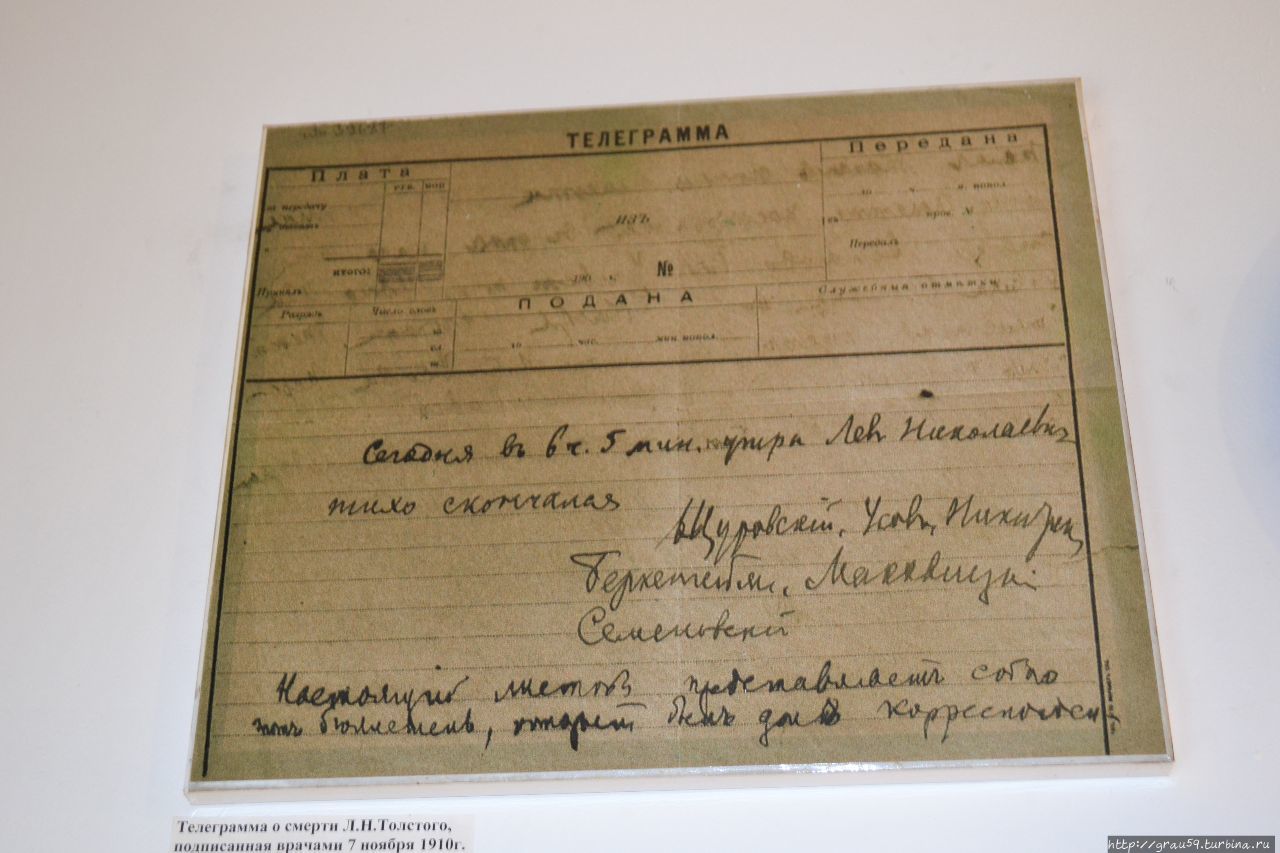 ТЕЛЕГРАММА
Плата
Передана
руб. коп.
за передачу
ИЗЪ
Передалъ
итого:
190 г. №
Принялъ
ПОДАНА
Служебныя отмѣтки
Разрядъ
Число словъ
го час. мин. попол.
Сегодня въ 6 ч. 5 мин. утра Левъ Николаевич
тихо скончался
Щуровскій, Усовъ, Никитин,
Беркенгейм, Маковицкі
Семеновскій
Настоящій листокъ представляетъ собою
тотъ бюллетень, который былъ данъ корреспонден
Телеграмма о смерти Л.Н.Толстого,
подписанная врачами 7 ноября 1910г.
http://grau59.turbina.ru